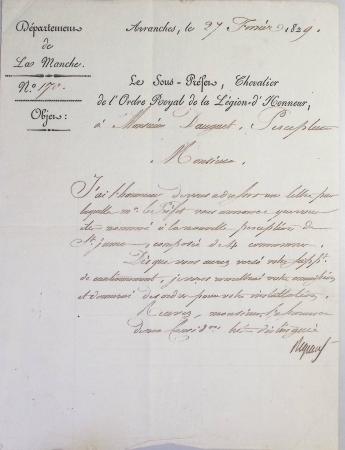 Département
de
La Manche.
N.º 170.
Objet:
Avranches, le 27 Février 1829.
Le Sous-Préfet, Chevalier
de l'Ordre Royal de la Légion-d'Honneur,
à Monsieur Percepteur
Monsieur
J'ai l'honneur de vous adresser une lettre par
laquelle Mr. le Préfet vous annonce que vous
été nommé à la nouvelle perception de
St. James, composée de 4 communes.
Dès que vous aurez versé votre suppt.
de cautionnement, je vous remettrai votre commission
et donnerai des ordres pour votre installation.
Recevez, monsieur, l'assurance
de ma Considon. très distinguée